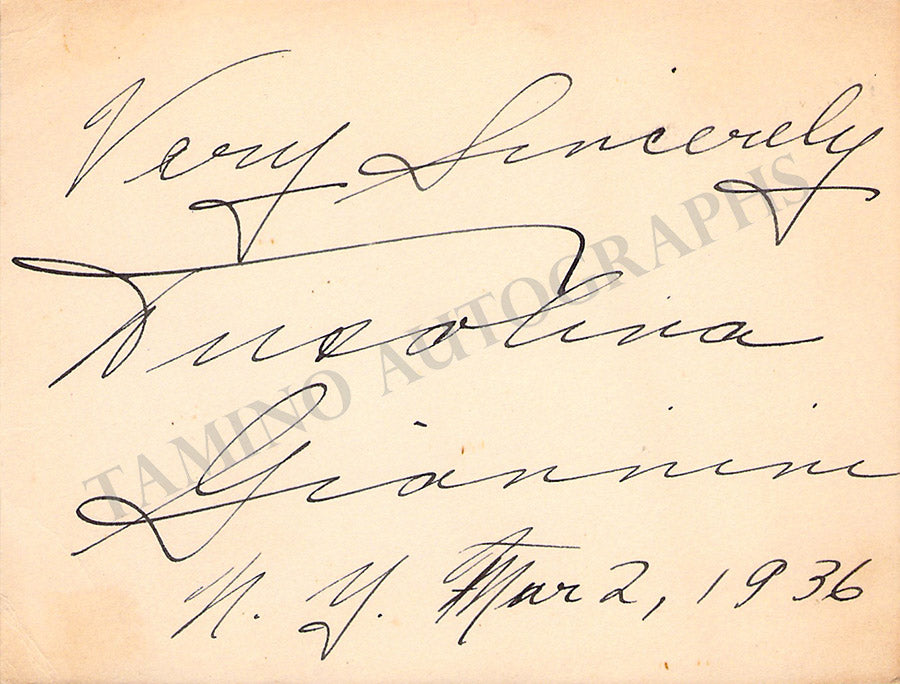 Very Sincerely
Dusolina
Giannini
N. Y. Mar 2, 1936
TAMINO AUTOGRAPHS